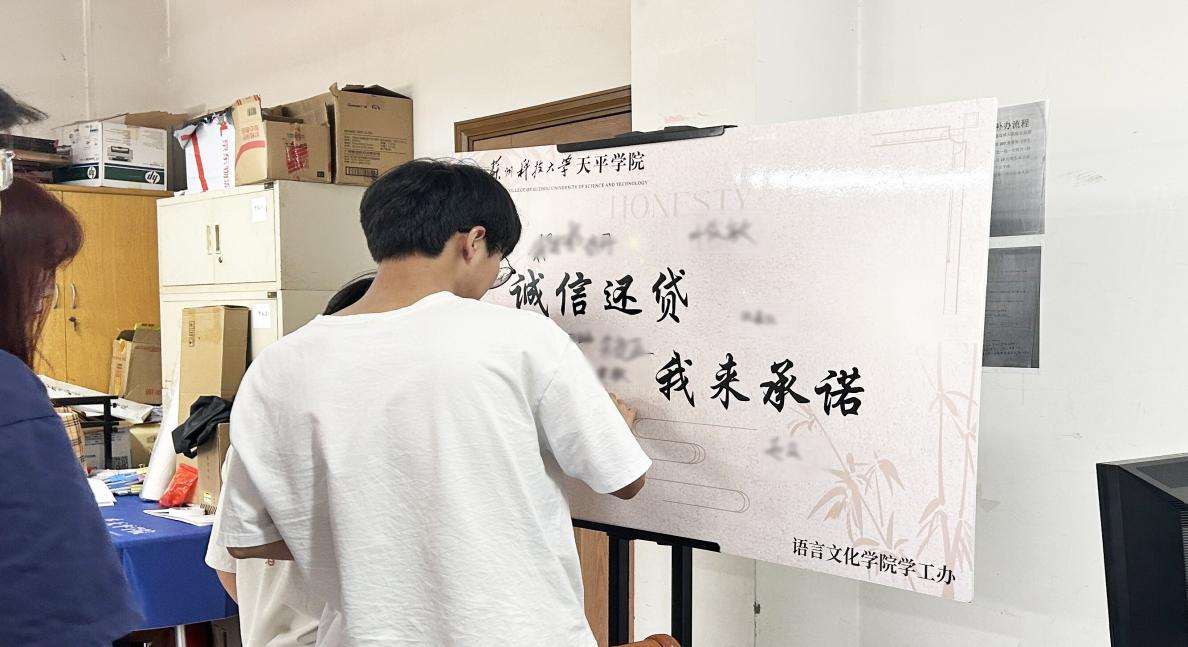 苏州科技大学天平学院
COLLEGE OF SUZHOU UNIVERSITY OF SCIENCE AND TECHNOLOGY
HONESTY
诚信还贷
我来承诺
语言文化学院学工办
补办流程